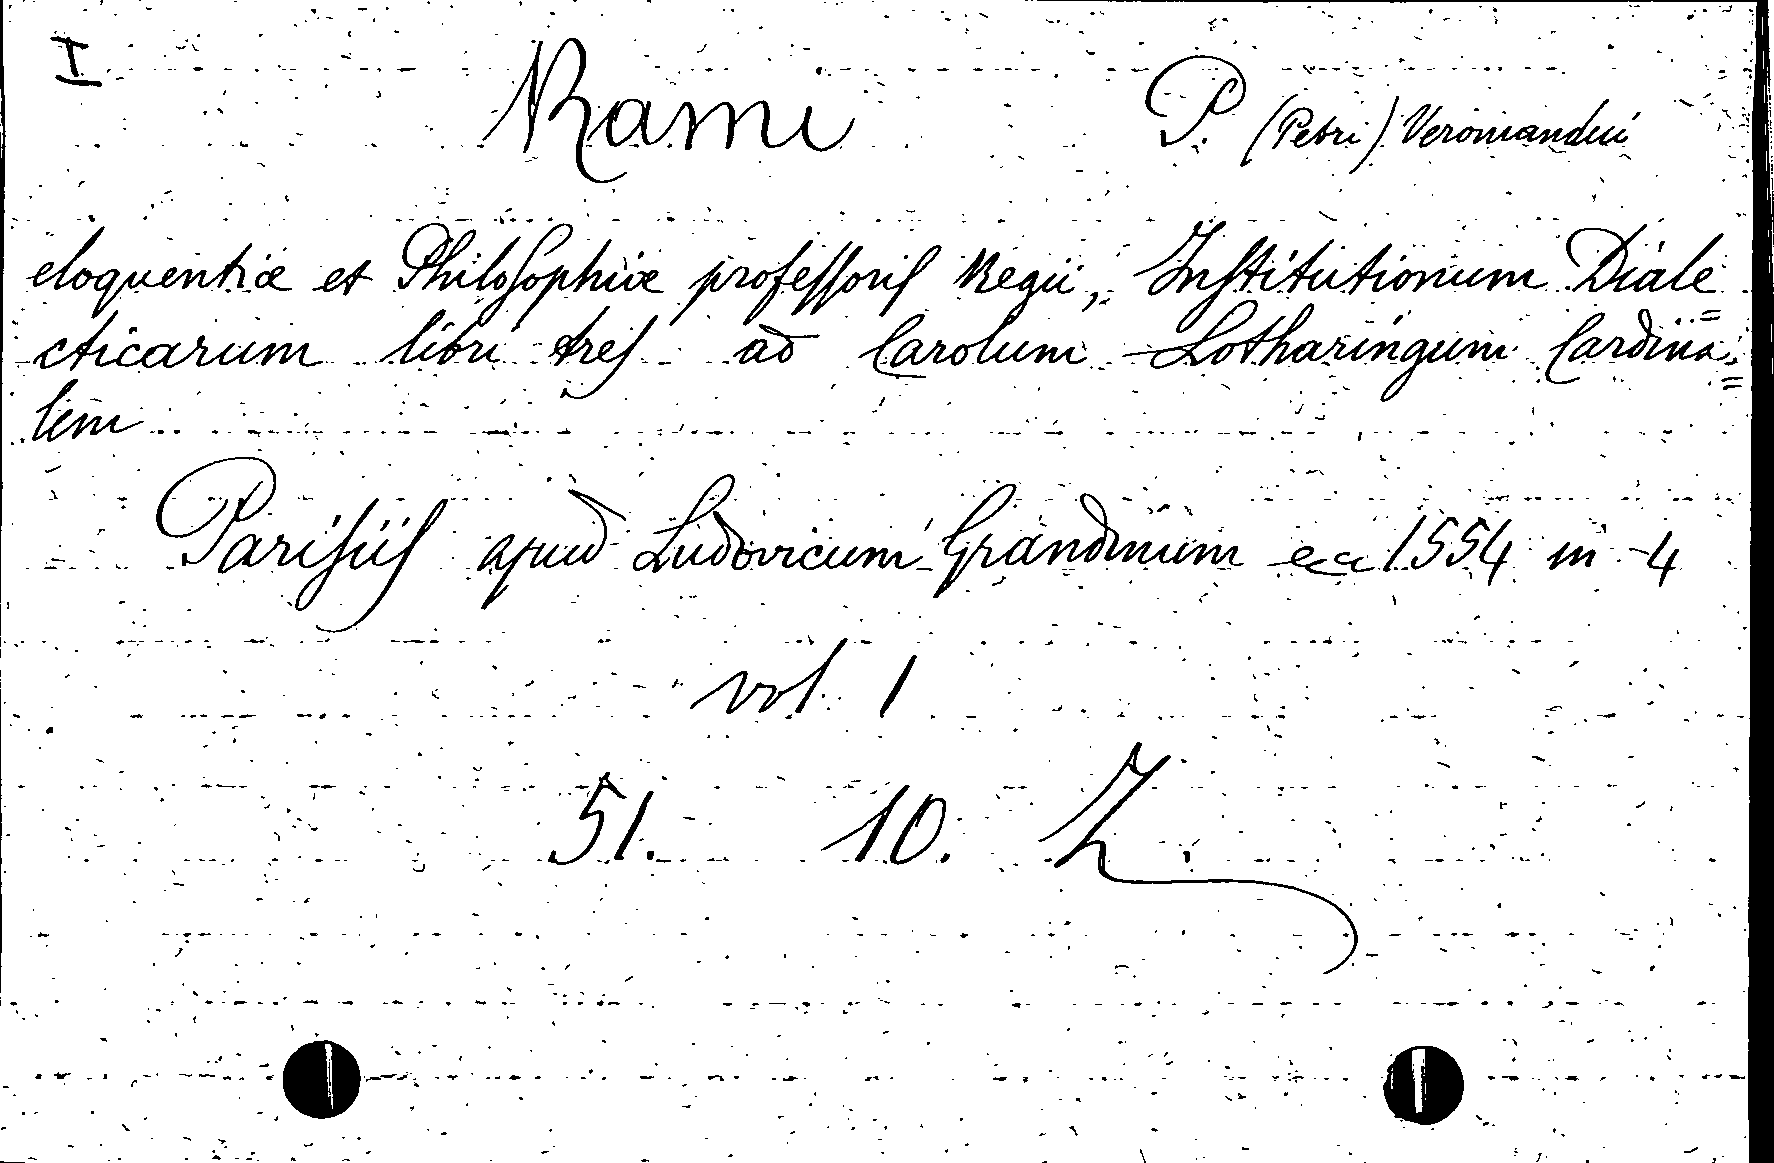 I
Rami P. (Petri) Veromandui
eloquentiæ et Philosophiæ professoris Regii, Institutionum Diale=
cticarum libri tres ad Carolum Lotharingum Cardina=
lem
Parisiis apud Ludovicum Grandinum 1554 in 4
vol. 1
51. 10. Z.